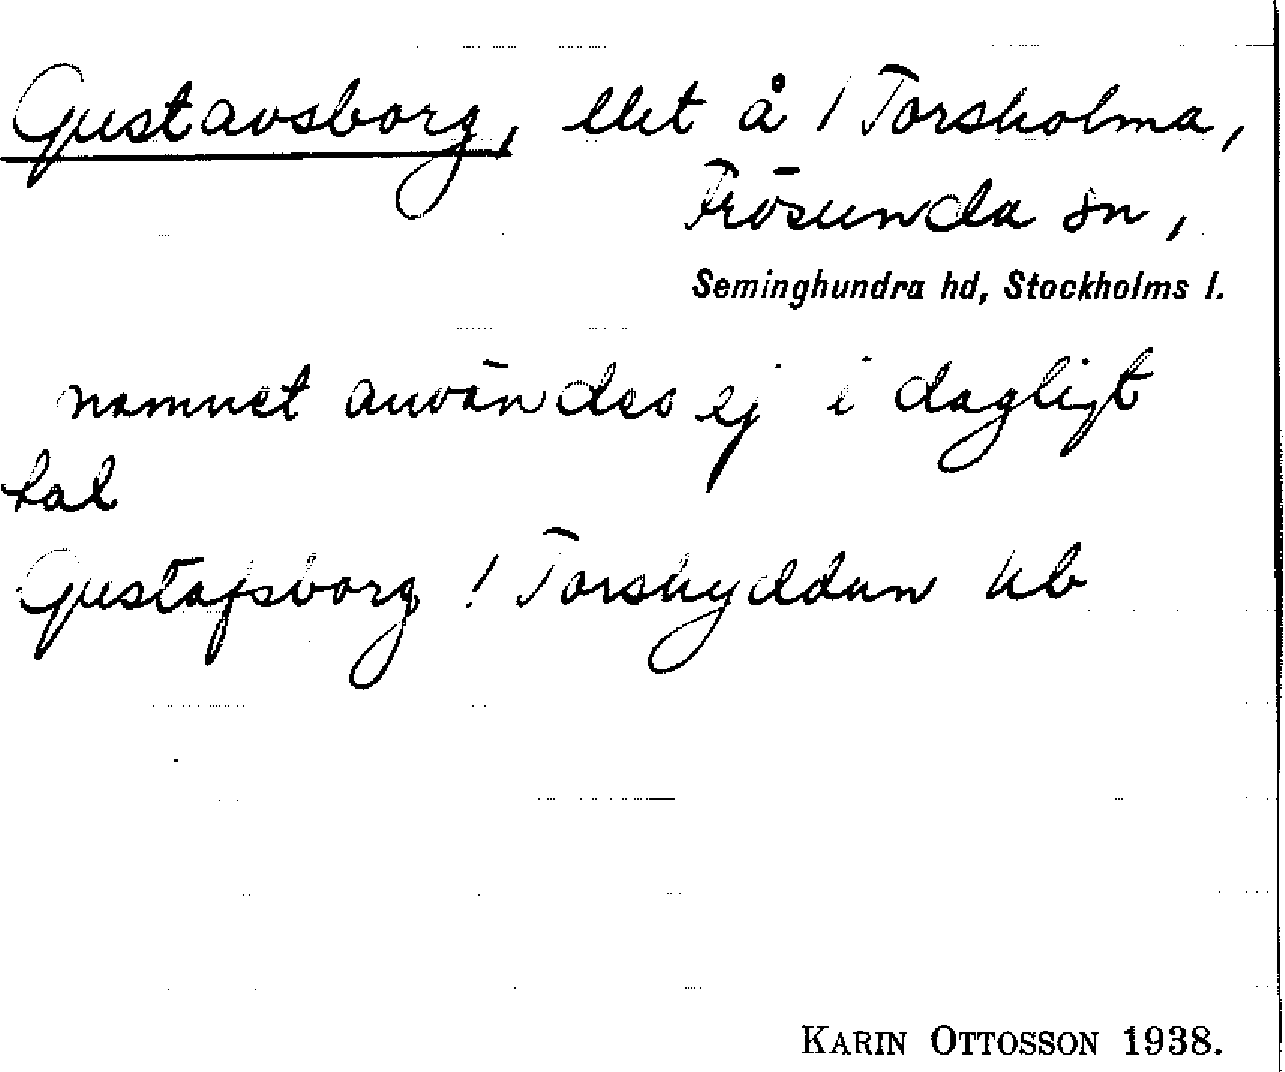 Gustavsborg, llet å 1 Torsholma,
Frösunda sn,
Seminghundra hd, Stockholms l.
namnet användes ej i dagligt
tal
Gustafsborg ! Torshyddan hb
KARIN OTTOSSON 1938.